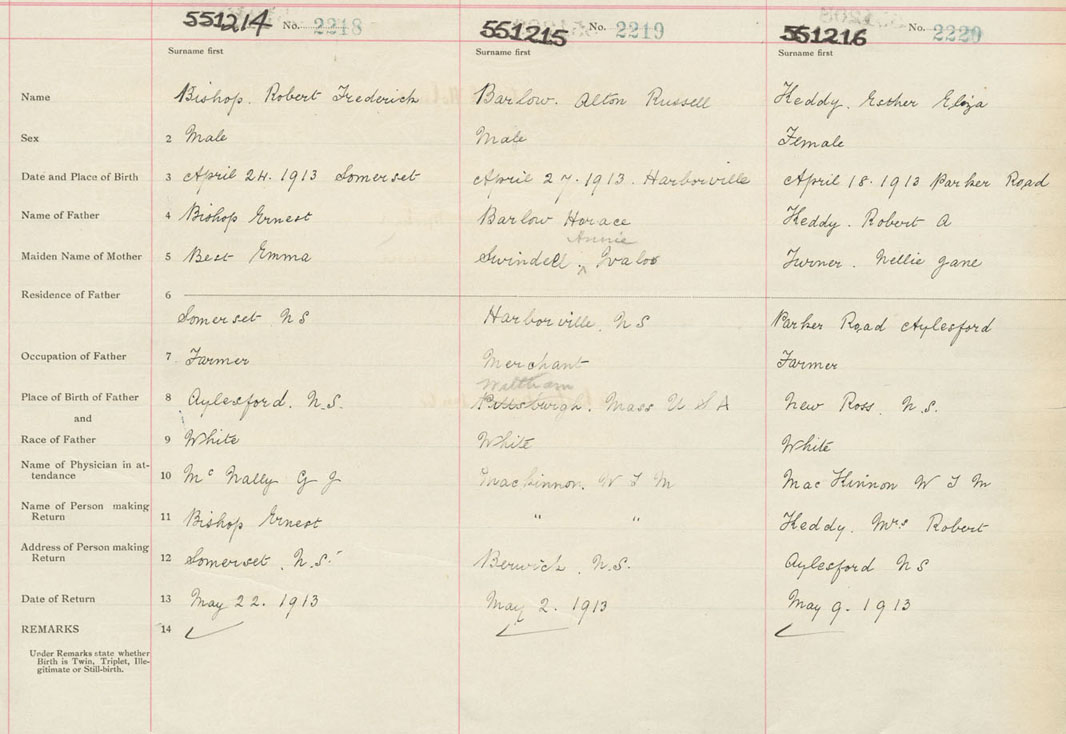 551214 No. 2218 551215 No. 2219 551216 No. 2220
Surname first Surname first Surname first
Name Bishop. Robert Frederick Barlow. Alton Russell Keddy. Esther Eliza
Sex 2 Male Male Female
Date and Place of Birth 3 April 24. 1913 Somerset April 27. 1913. Harborville April 18. 1913 Parker Road
Name of Father 4 Bishop Ernest Barlow Horace Keddy. Robert A
Annie
Maiden Name of Mother 5 Best Emma Swindell ^ Turner. Nellie Jane
Residence of Father 6
Somerset NS Harborville. NS Parker Road Aylesford
Occupation of Father 7 Farmer Merchant Farmer
Waltham
Place of Birth of Father 8 Aylesford. N.S. Pittsburgh. Mass U S A New Ross. N.S.
and
Race of Father 9 White White White
Name of Physician in at-
tendance 10 Mc Nally G J MacKinnon. W F M MacKinnon W F M
Name of Person making
Return 11 Bishop Ernest " " Keddy. Mrs Robert
Address of Person making
Return 12 Somerset. N.S. Berwick. N.S. Aylesford NS
Date of Return 13 May 22. 1913 May 2. 1913 May 9. 1913
REMARKS 14
Under Remarks state whether
Birth is Twin, Triplet, Ille-
gitimate or Still-birth.